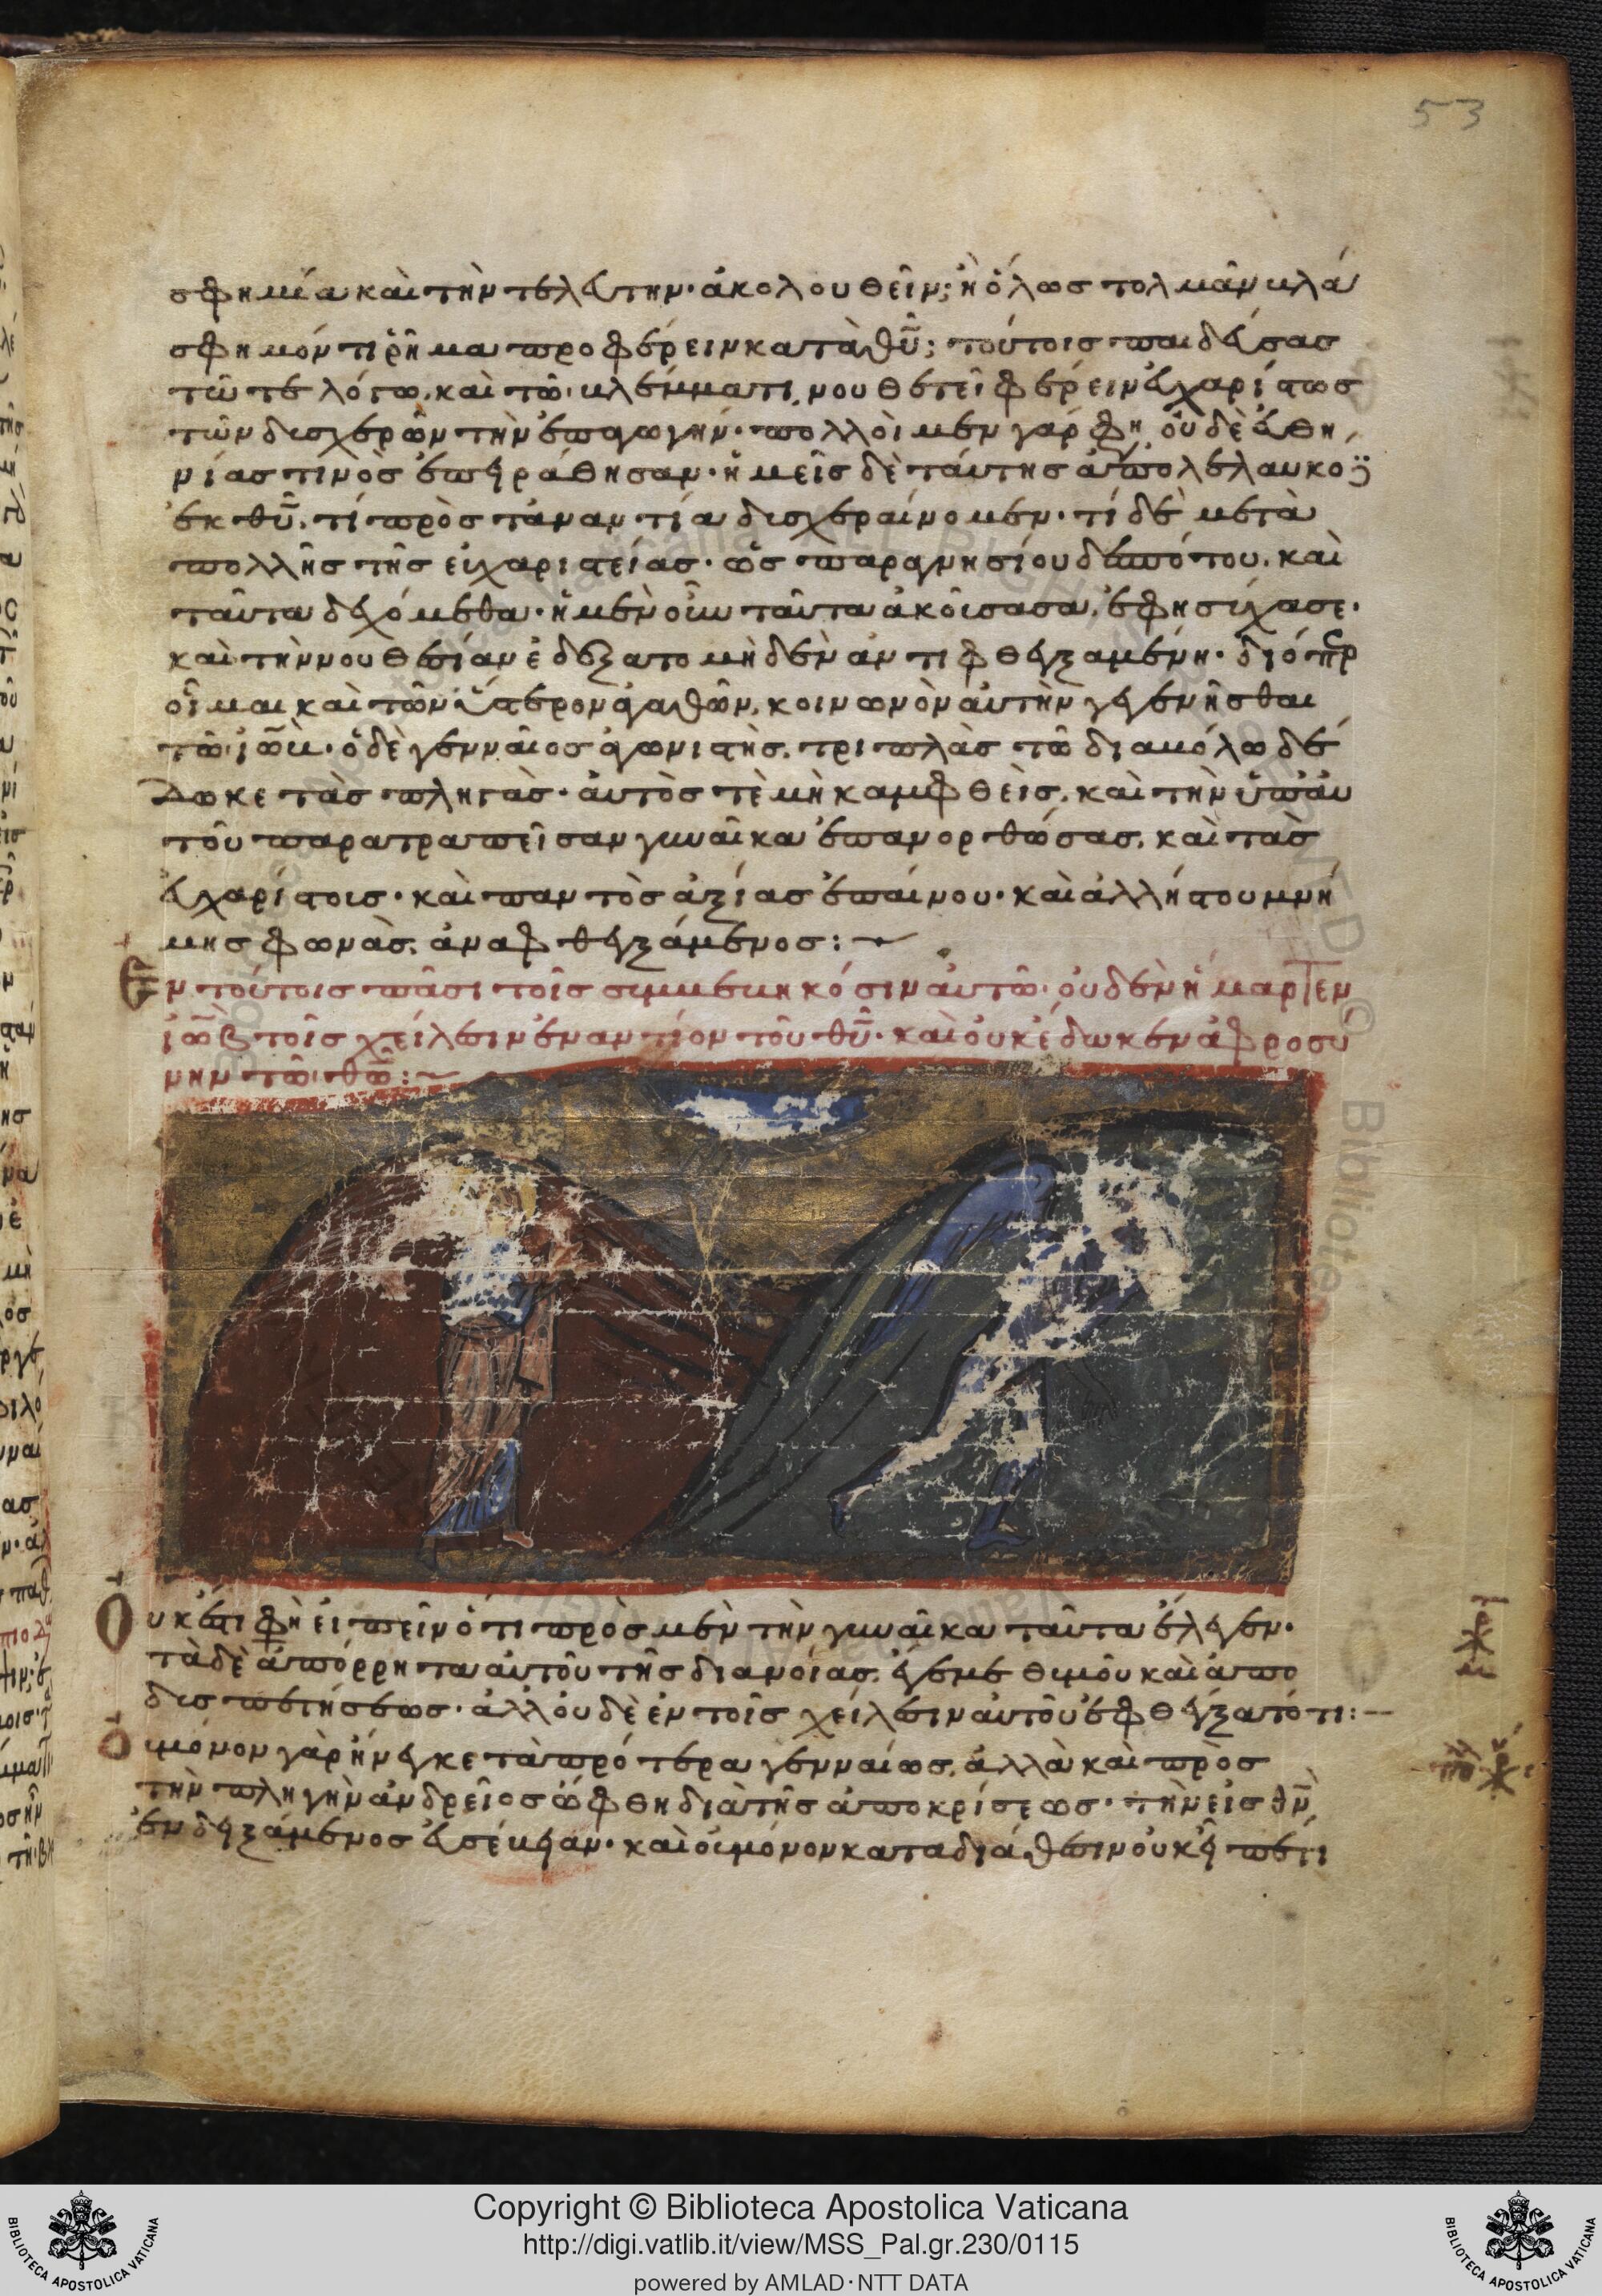 53
σφημία καὶ τὴν τελευτὴν ἀκολουθεῖν; ἢ ὅλως τολμᾶν βλά
σφημόν τι ῥῆμα προφέρειν κατὰ θῡ; τούτοις παιδεύσας
τῶ τε λόγω, καὶ τῶ βλέμματι, νουθετεῖ φέρειν εὐχαρίστως
τῶν δυσχερῶν τὴν ἐπαγωγήν· πολλοὶ μὲν γάρ φη, οὐδὲ εὐθη
νίας τινὸς ἐπειράθησαν· ἡμεῖς δὲ ταύτης ἀπολελαυκό
ἐκ θῡ, τί πρὸς τἀναντία δυσχεραίνομεν· τί δὲ μετὰ
πολλῆς τῆς εὐχαριστείας· ὡς παρὰ γνησίου δεσπότου, καὶ
ταῦτα δεχόμεθα· ἡ μὲν οὖν ταῦτα ἀκούσασα, ἐφησύχασε·
καὶ τὴν νουθεσίαν ἐδέξατο μηδὲν ἀντιφθεγξαμένη· διόπερ
οἶμαι καὶ τῶν ὕστερον ἀγαθῶν, κοινωνὸν αὐτὴν γεγενῆσθαι
τῶ ἰώβ· ὁ δὲ γενναῖος ἀγωνιστὴς, τριπλὰς τῶ διαβόλω δέ
δωκε τὰς πληγάς· αὐτός τε μὴ καμφθεὶς, καὶ τὴν ὑπ' αὐ
τοῦ παρατραπεῖσαν γυναῖκα ἐπανορθώσας, καὶ τὰς
εὐχαρίστοις· καὶ παντὸς ἀξίας ἐπαίνου· καὶ ἀλλήστου μνή
μης φωνὰς, ἀναφθεγξάμενος:
Εν τούτοις πᾶσι τοῖς συμβεβηκόσιν αὐτῶ· οὐδὲν ἥμαρτεν
ἰὼβ τοῖς χείλεσιν ἐναντίον τοῦ θῡ· καὶ οὐκ ἔδωκεν ἀφροσύ
νην τῶ θῶ:
Ουκ ἔστι φη εἰπεῖν ὅτι πρὸς μὲν τὴν γυναῖκα ταῦτα ἔλεγεν·
τὰ δὲ ἀπόρρητα αὐτοῦ τῆς διανοίας, ἔγεμε θυμοῦ καὶ ἀπο
δυσπετήσεως· ἀλλ' οὐδὲ ἐν τοῖς χείλεσιν αὐτοῦ ἐφθέγξατό τι:
Ου μόνον γὰρ ἤνεγκε τὰ πρότερα γενναίως, ἀλλὰ καὶ πρὸς
τὴν πληγὴν ἀνδρεῖος ὤφθη διὰ τῆς ἀποκρίσεως· τὴν εἰς θν̄
ἐνδειξάμενος εὐσέβειαν· καὶ οὐ μόνον κατα διάθεσιν οὐκ
Copyright © Biblioteca Apostolica Vaticana
http://digi.vatlib.it/view/MSS_Pal.gr.230/0115
powered by AMLAD·NTT DATA
BIBLIOTECA APOSTOLICA VATICANA
BIBLIOTECA APOSTOLICA VATICANA